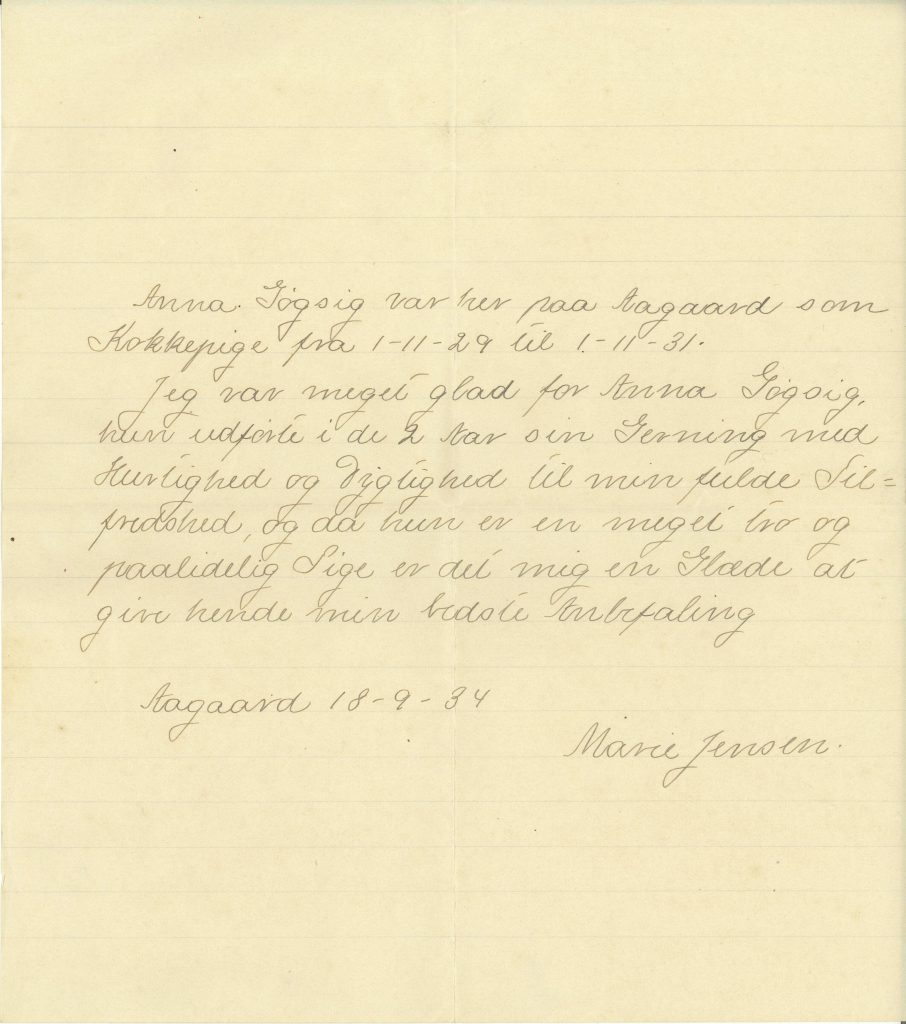 Anna Gøgsig var her paa Aagaard som
Kokkepige fra 1-11-29 til 1-11-31.
Jeg var meget glad for Anna Gøgsig,
hun udførte i de 2 Aar sin Gerning med
Hurtighed og Dygtighed til min fulde Til=
fredshed, og da hun er en meget tro og
paalidelig Pige er det mig en Glæde at
give hende min bedste Anbefaling
Aagaard 18-9-34
Marie Jensen.